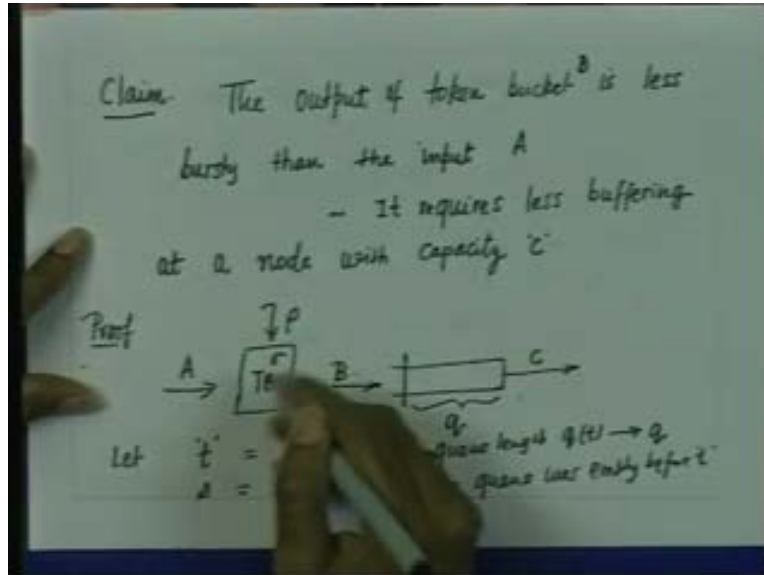 Claim The output of token bucket B is less
bursty than the input A
- It requires less buffering
at a node with capacity 'C'
Proof
ρ
A TB σ B C
q
Let 't' = queue length q(t) → q
s = queue was empty before t